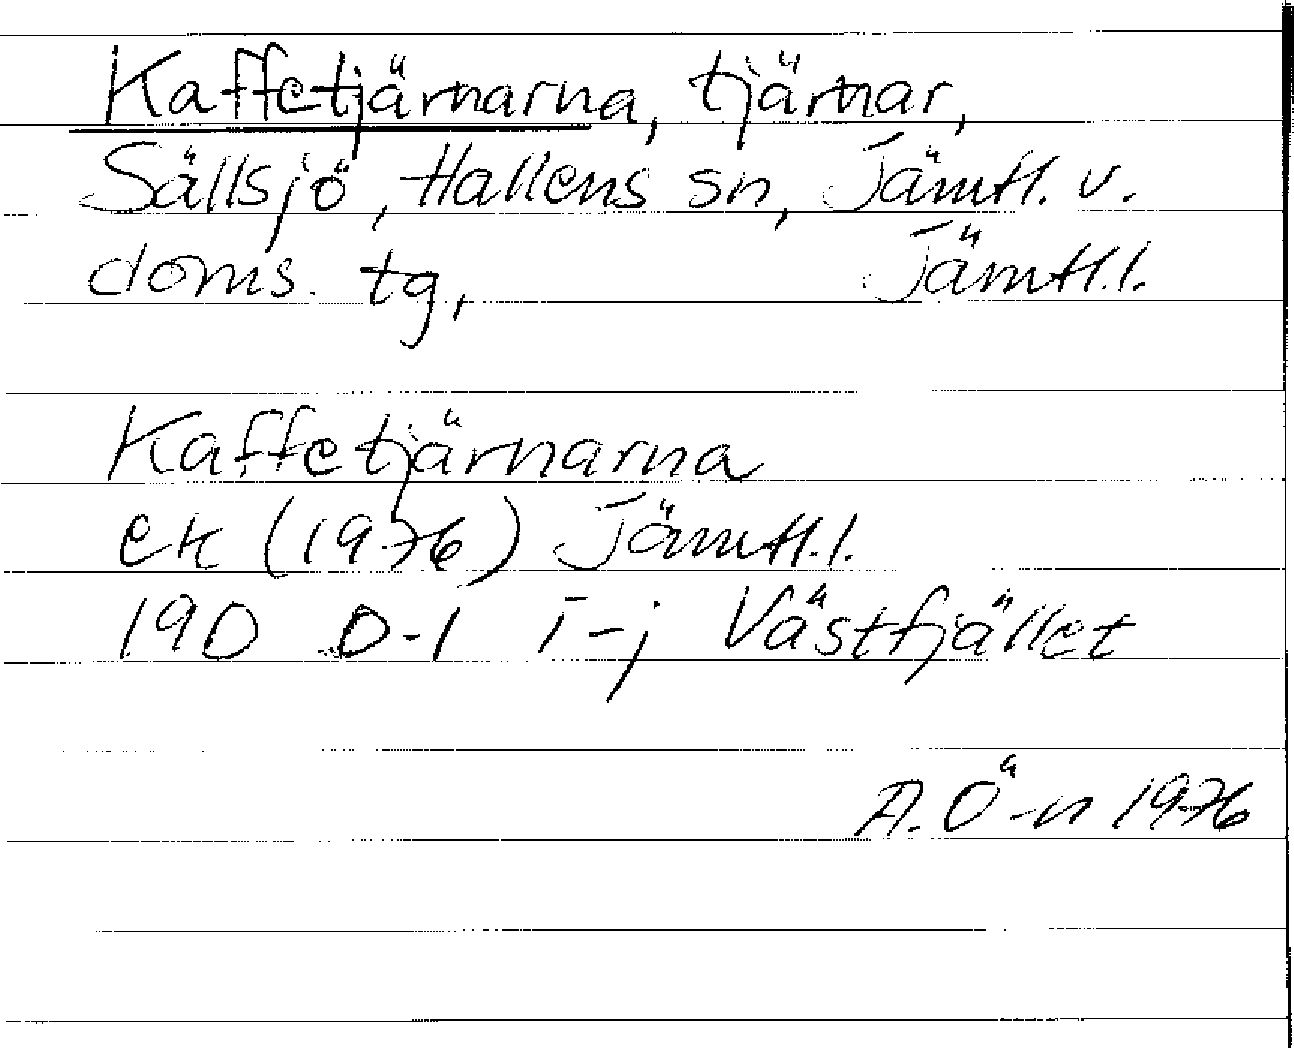 Kaffetjärnarna, tjärnar,
Sällsjö, Hallens sn, Jämtl. v.
doms. tg, Jämtl.l.
Kaffetjärnarna
ek (1976) Jämtl.l.
19D 0-1 i-j Västfjället
A. Ö-n 1976